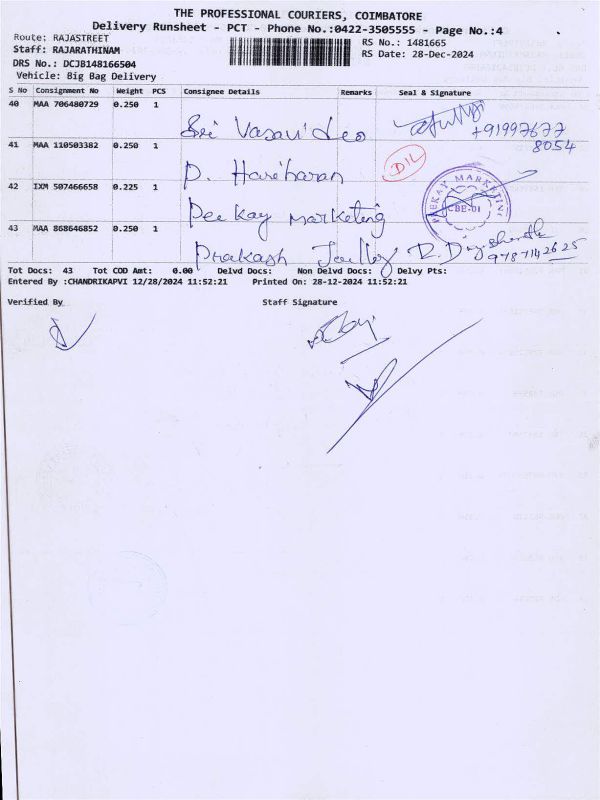 THE PROFESSIONAL COURIERS, COIMBATORE
Delivery Runsheet - PCT - Phone No.:0422-3505555 - Page No.:4
Route: RAJASTREET
RS No.: 1481665
Staff: RAJARATHINAM
RS Date: 28-Dec-2024
DRS No.: DCJB148166504
Vehicle: Big Bag Delivery
S No Consignment No Weight PCS Consignee Details Remarks Seal & Signature
40 MAA 706480729 0.250 1
Sri Vasavi Leo
+91997677
8054
41 MAA 110503382 0.250 1
P. Hariharan
D/L
42 IXM 507466658 0.225 1
Pee Kay marketing
PEEKAY MARKETING
CBE-01
43 MAA 868646852 0.250 1
Prakash
9787142625
Tot Docs: 43 Tot COD Amt: 0.00 Delvd Docs: Non Delvd Docs: Delvy Pts:
Entered By :CHANDRIKAPVI 12/28/2024 11:52:21 Printed On: 28-12-2024 11:52:21
Verified By Staff Signature